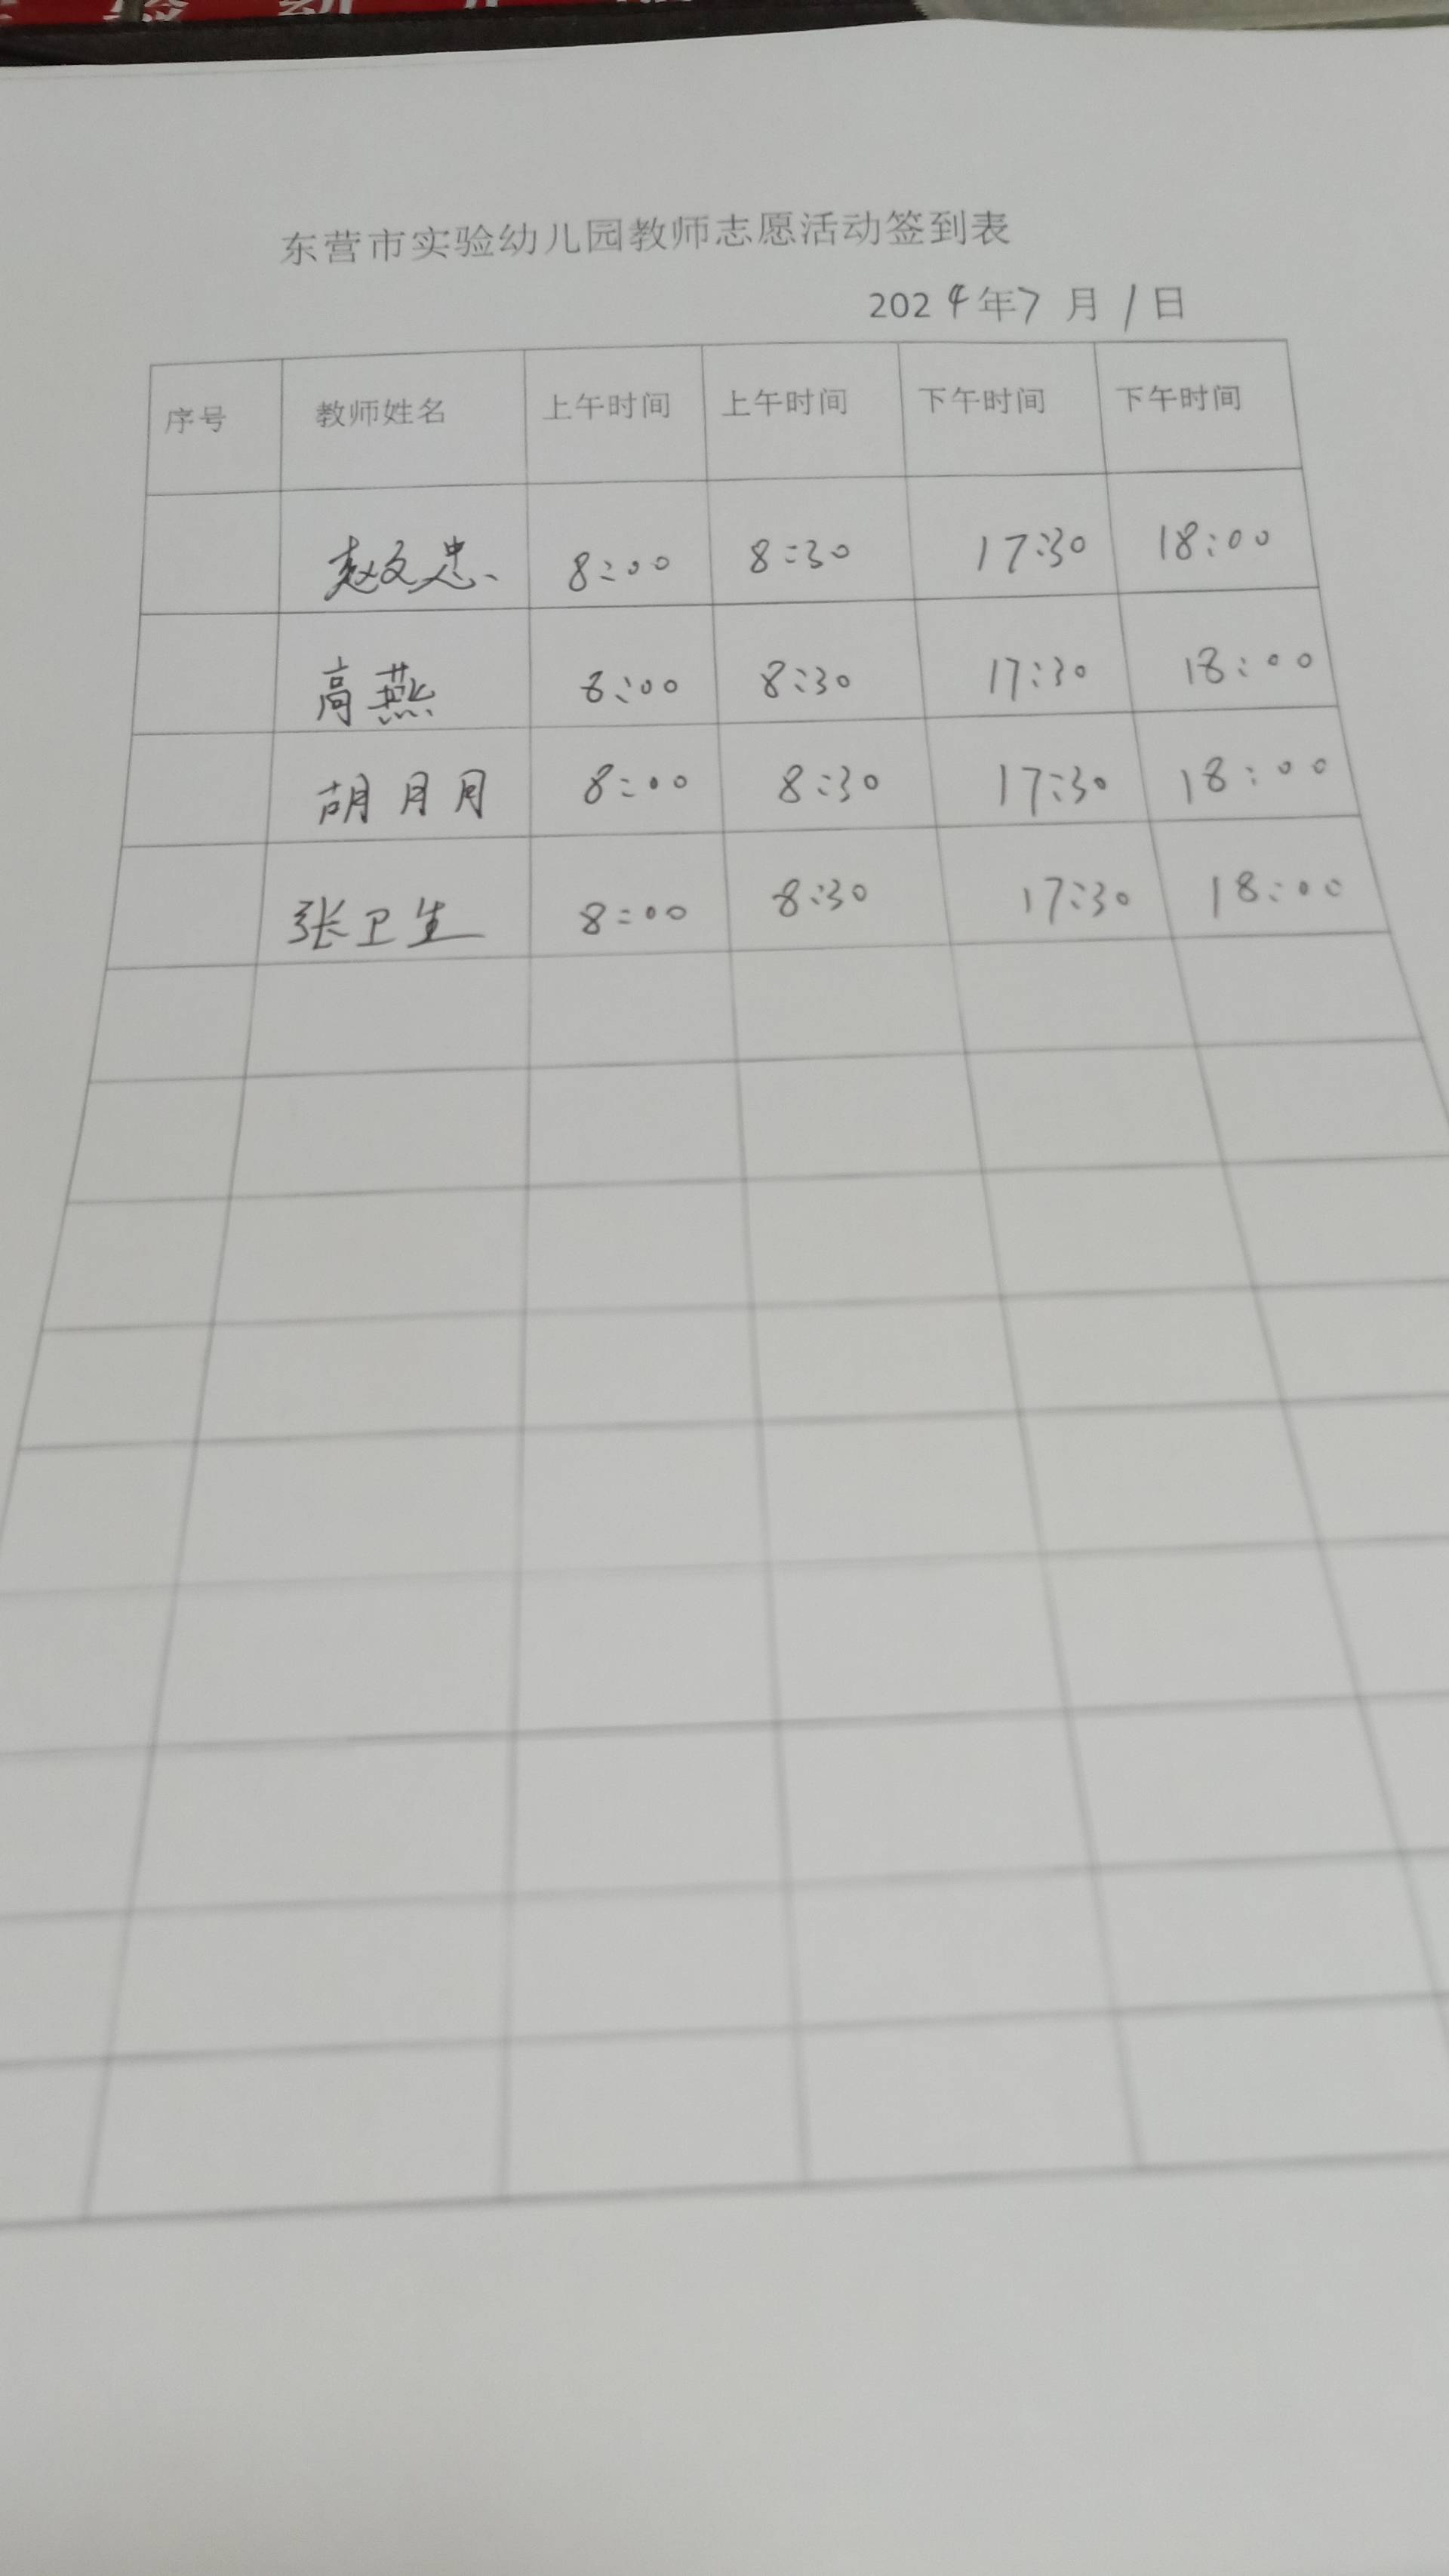 东营市实验幼儿园教师志愿活动签到表
2024年7月1日
序号 教师姓名 上午时间 上午时间 下午时间 下午时间
赵文忠 8:00 8:30 17:30 18:00
高燕 8:00 8:30 17:30 18:00
胡月月 8:00 8:30 17:30 18:00
张卫生 8:00 8:30 17:30 18:00